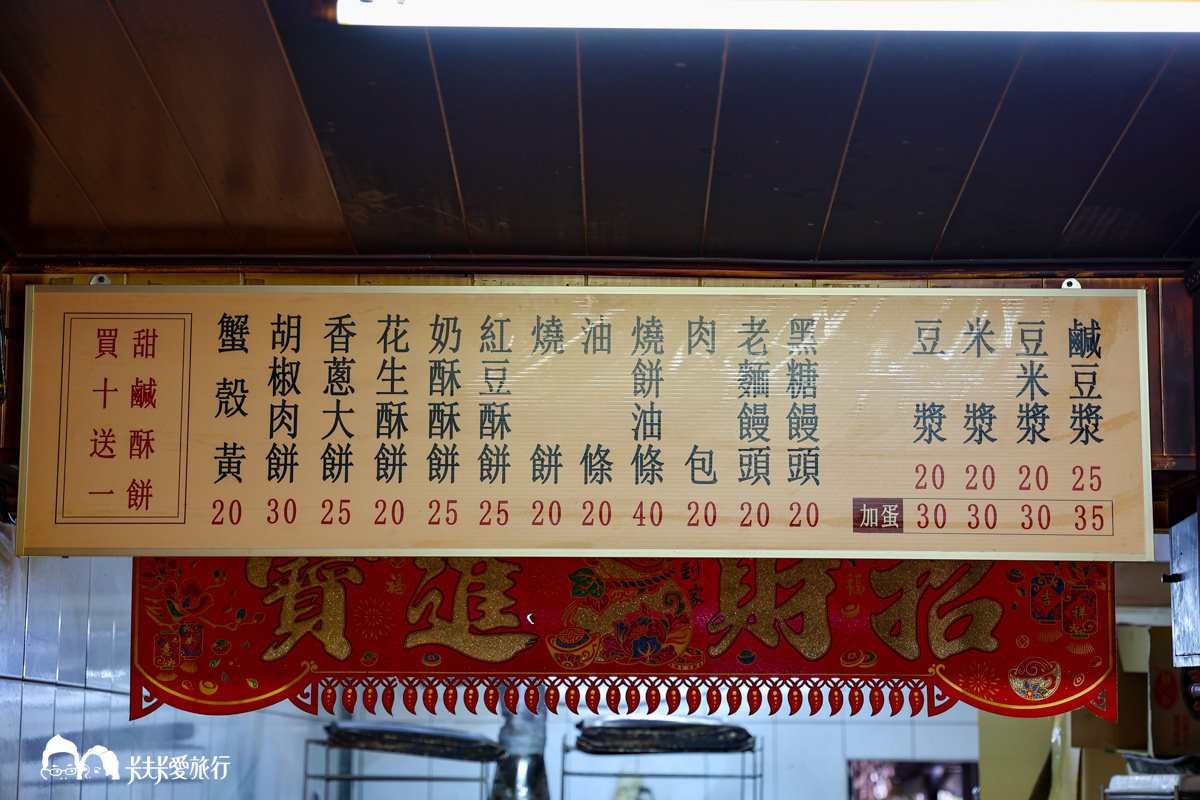 鹹豆漿 25 35
豆米漿 20 30
米漿 20 30
豆漿 20 30
加蛋
黑糖饅頭 20
老麵饅頭 20
肉包 20
燒餅油條 40
油條 20
燒餅 20
紅豆酥餅 25
奶酥酥餅 25
花生酥餅 20
香蔥大餅 25
胡椒肉餅 30
蟹殼黃 20
甜鹹酥餅
買十送一
招財進寶
到家
福
福
吉祥
卡夫卡愛旅行